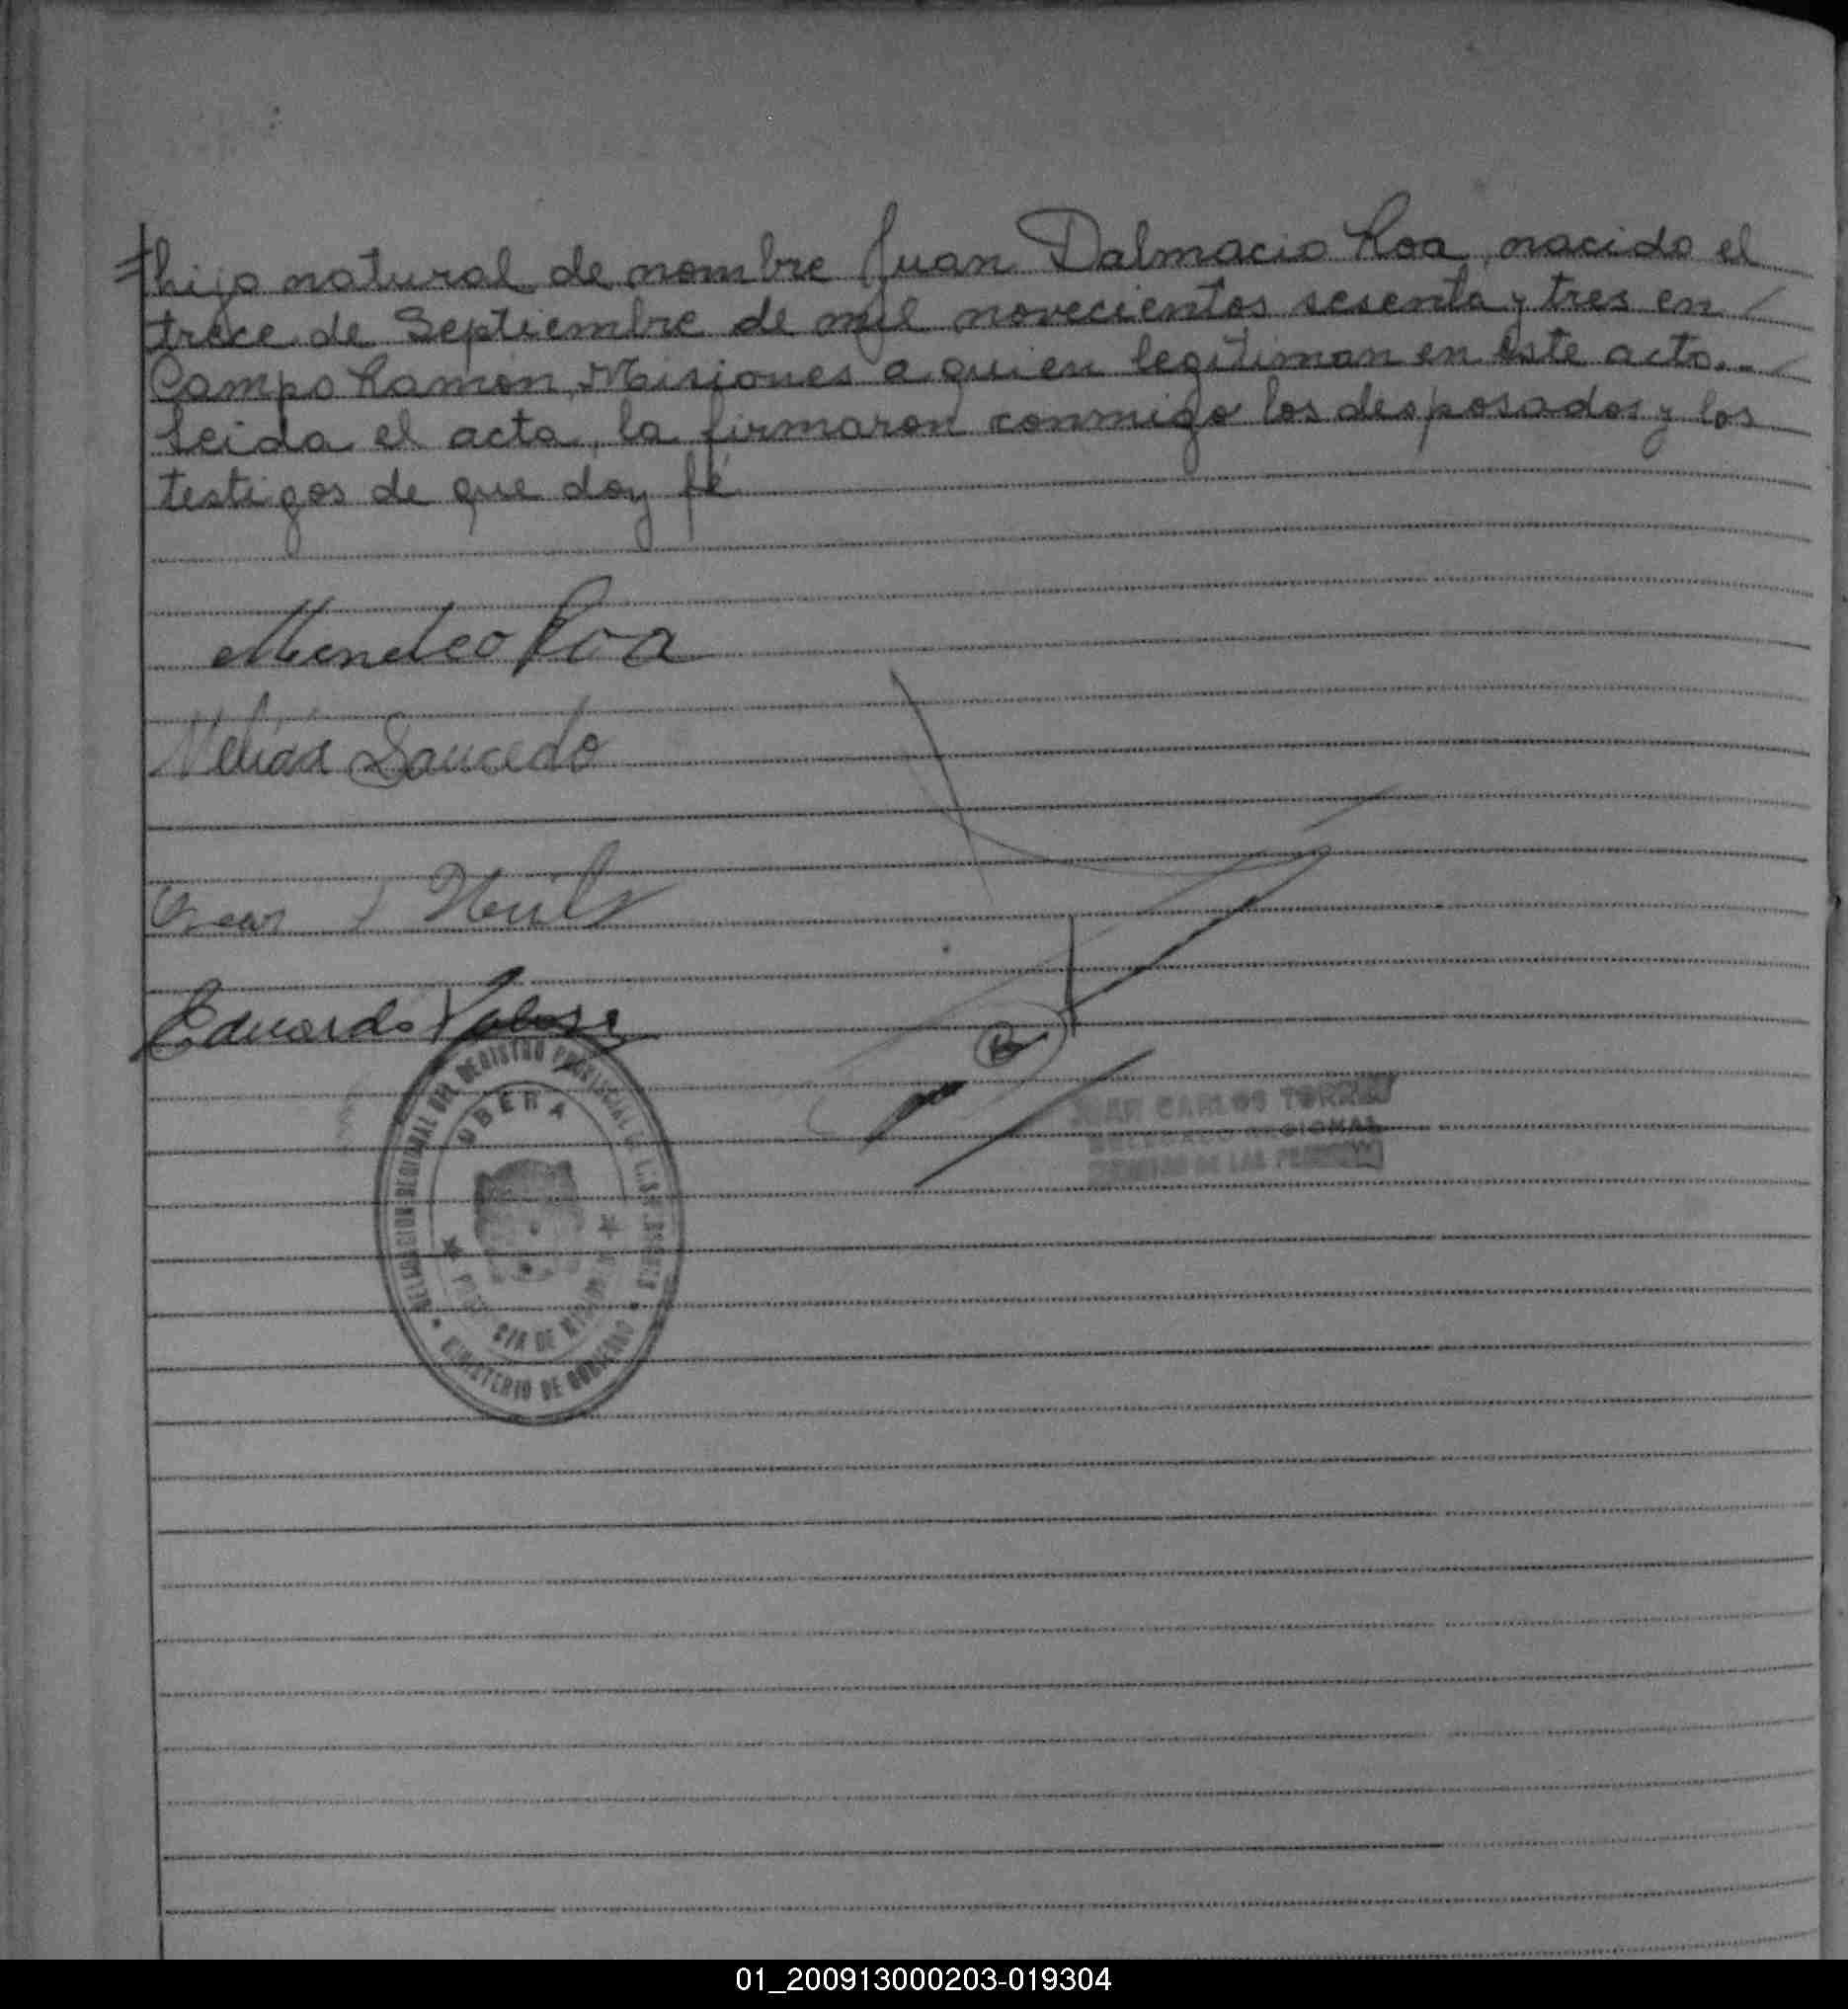 hijo natural de nombre Juan Dalmacio Roa, nacido el
trece de Septiembre de mil novecientos sesenta y tres en /
Campo Ramón, Misiones a quien legitiman en este acto.-- /
Leida el acta, la firmaron conmigo los desposados y los
testigos de que doy fé
Roa
Saucedo
Eduardo
DELEGACION REGIONAL DEL REGISTRO PROVINCIAL DE
OBERA
PROVINCIA DE MISIONES
MINISTERIO DE GOBIERNO
JUAN CARLOS TORRES
DELEGADO REGIONAL
REGISTRO DE LAS PERSONAS
01_200913000203-019304